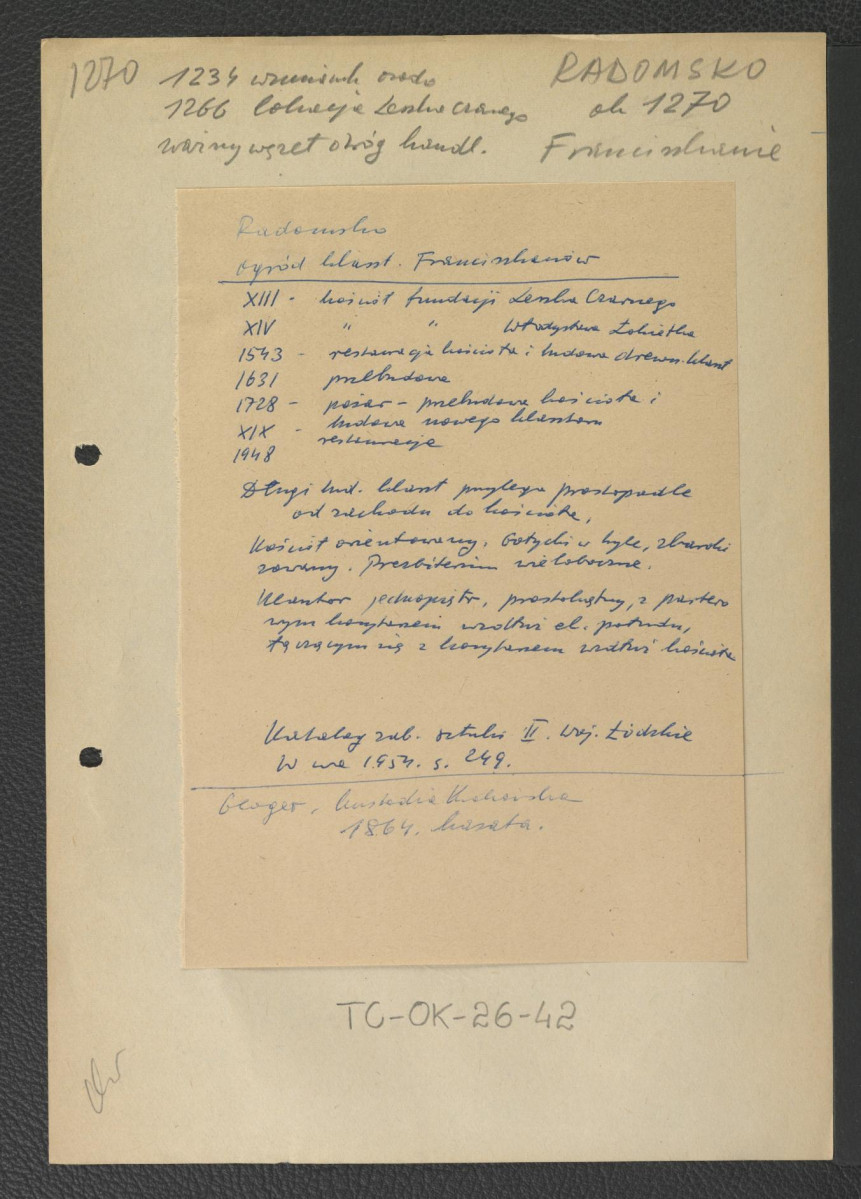 1270
1234 wzmiank osada
1266 lokacja Leszka Czarnego
ważny węzeł dróg handl.
RADOMSKO
ok 1270
Franciszkanie
Radomsko
ogród klaszt. Franciszkanów
XIII - kościół fundacji Leszka Czarnego
XIV " " Władysława Łokietka
1543 - restauracja kościoła i budowa drewn. klaszt
1631 przebudowa
1728 - pożar - przebudowa kościoła i
budowa nowego klasztoru
XIX - restauracja
1948
Długi bud. klaszt przylega prostopadle
od zachodu do kościoła,
Kościół orientowany. Gotycki w bryle, zbaroki
zowany. Prezbiterium wieloboczne.
Klasztor jednopiętr, prostokątny, z partero
wym korytarzem wzdłuż el. połudn,
łączącym się z korytarzem wzdłuż kościoła
Katalog zab. sztuki II. woj. Łódzkie
W wa 1954. s. 249.
Gloger, kustodia
1864. kasata.
TC-OK-26-42